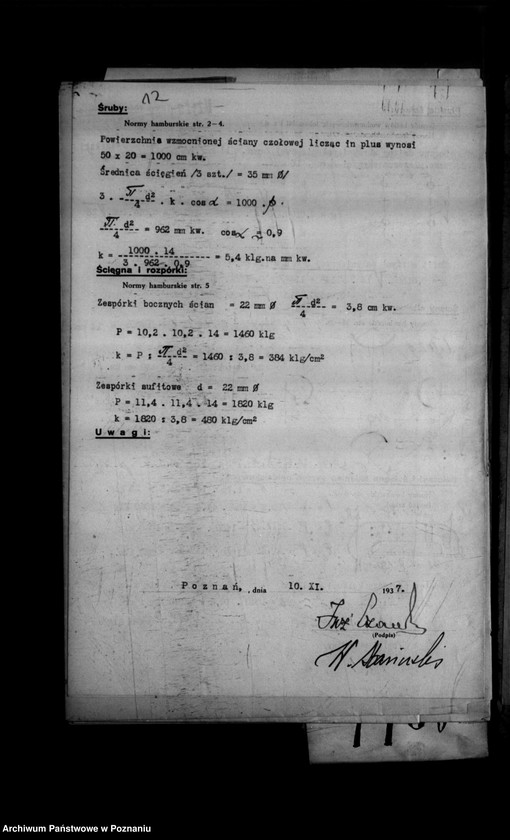 12
Śruby:
Normy hamburskie str. 2-4.
Powierzchnia wzmocnionej ściany czołowej licząc in plus wynosi
50 x 20 = 1000 cm kw.
Średnica ścięgien /3 szt./ = 35 mm Ø/
3 . π d² / 4 . k . cos α = 1000 . p .
π d² / 4 = 962 mm kw. cos α = 0,9
k = 1000 . 14 / 3 . 962 . 0,9 = 5,4 klg.na mm kw.
Ścięgna i rozpórki:
Normy hamburskie str. 5
Zespórki bocznych ścian = 22 mm Ø π d² / 4 = 3,8 cm kw.
P = 10,2 . 10,2 . 14 = 1460 klg
k = P : π d² / 4 = 1460 : 3,8 = 384 klg/cm²
Zespórki sufitowe d = 22 mm Ø
P = 11,4 . 11,4 . 14 = 1820 klg
k = 1820 : 3,8 = 480 klg/cm²
Uwagi:
Poznań, , dnia 10. XI. 1937.
(Podpis)
Archiwum Państwowe w Poznaniu